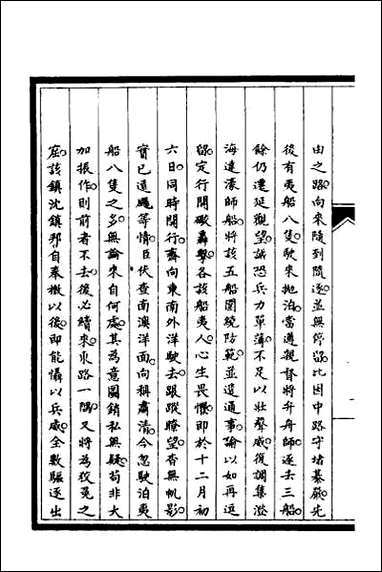 由之路向來隨到隨逐並無停留比因中路守堵綦嚴先
後有夷船八隻駛來拋泊當遵親督將弁舟師逐去三船
餘仍遷延觀望誠恐兵力單薄不足以壯聲威復調集澄
海達濠師船將該五船圍繞防範並遣通事諭以如再逗
留定行開礮轟擊各該船夷人心生畏懼即於十二月初
六日同時開行齊向東南外洋駛去跟蹤瞭望杳無帆影
實已遠颺等情臣伏查南澳洋面向稱肅清今忽駛泊夷
船八隻之多無論來自何處其為意圖銷私無疑苟非大
加振作則前者不去後必續來水路一隅又將為狡兔之
窟該鎮沈鎮邦自奉檄以後即能懾以兵威全數驅逐出